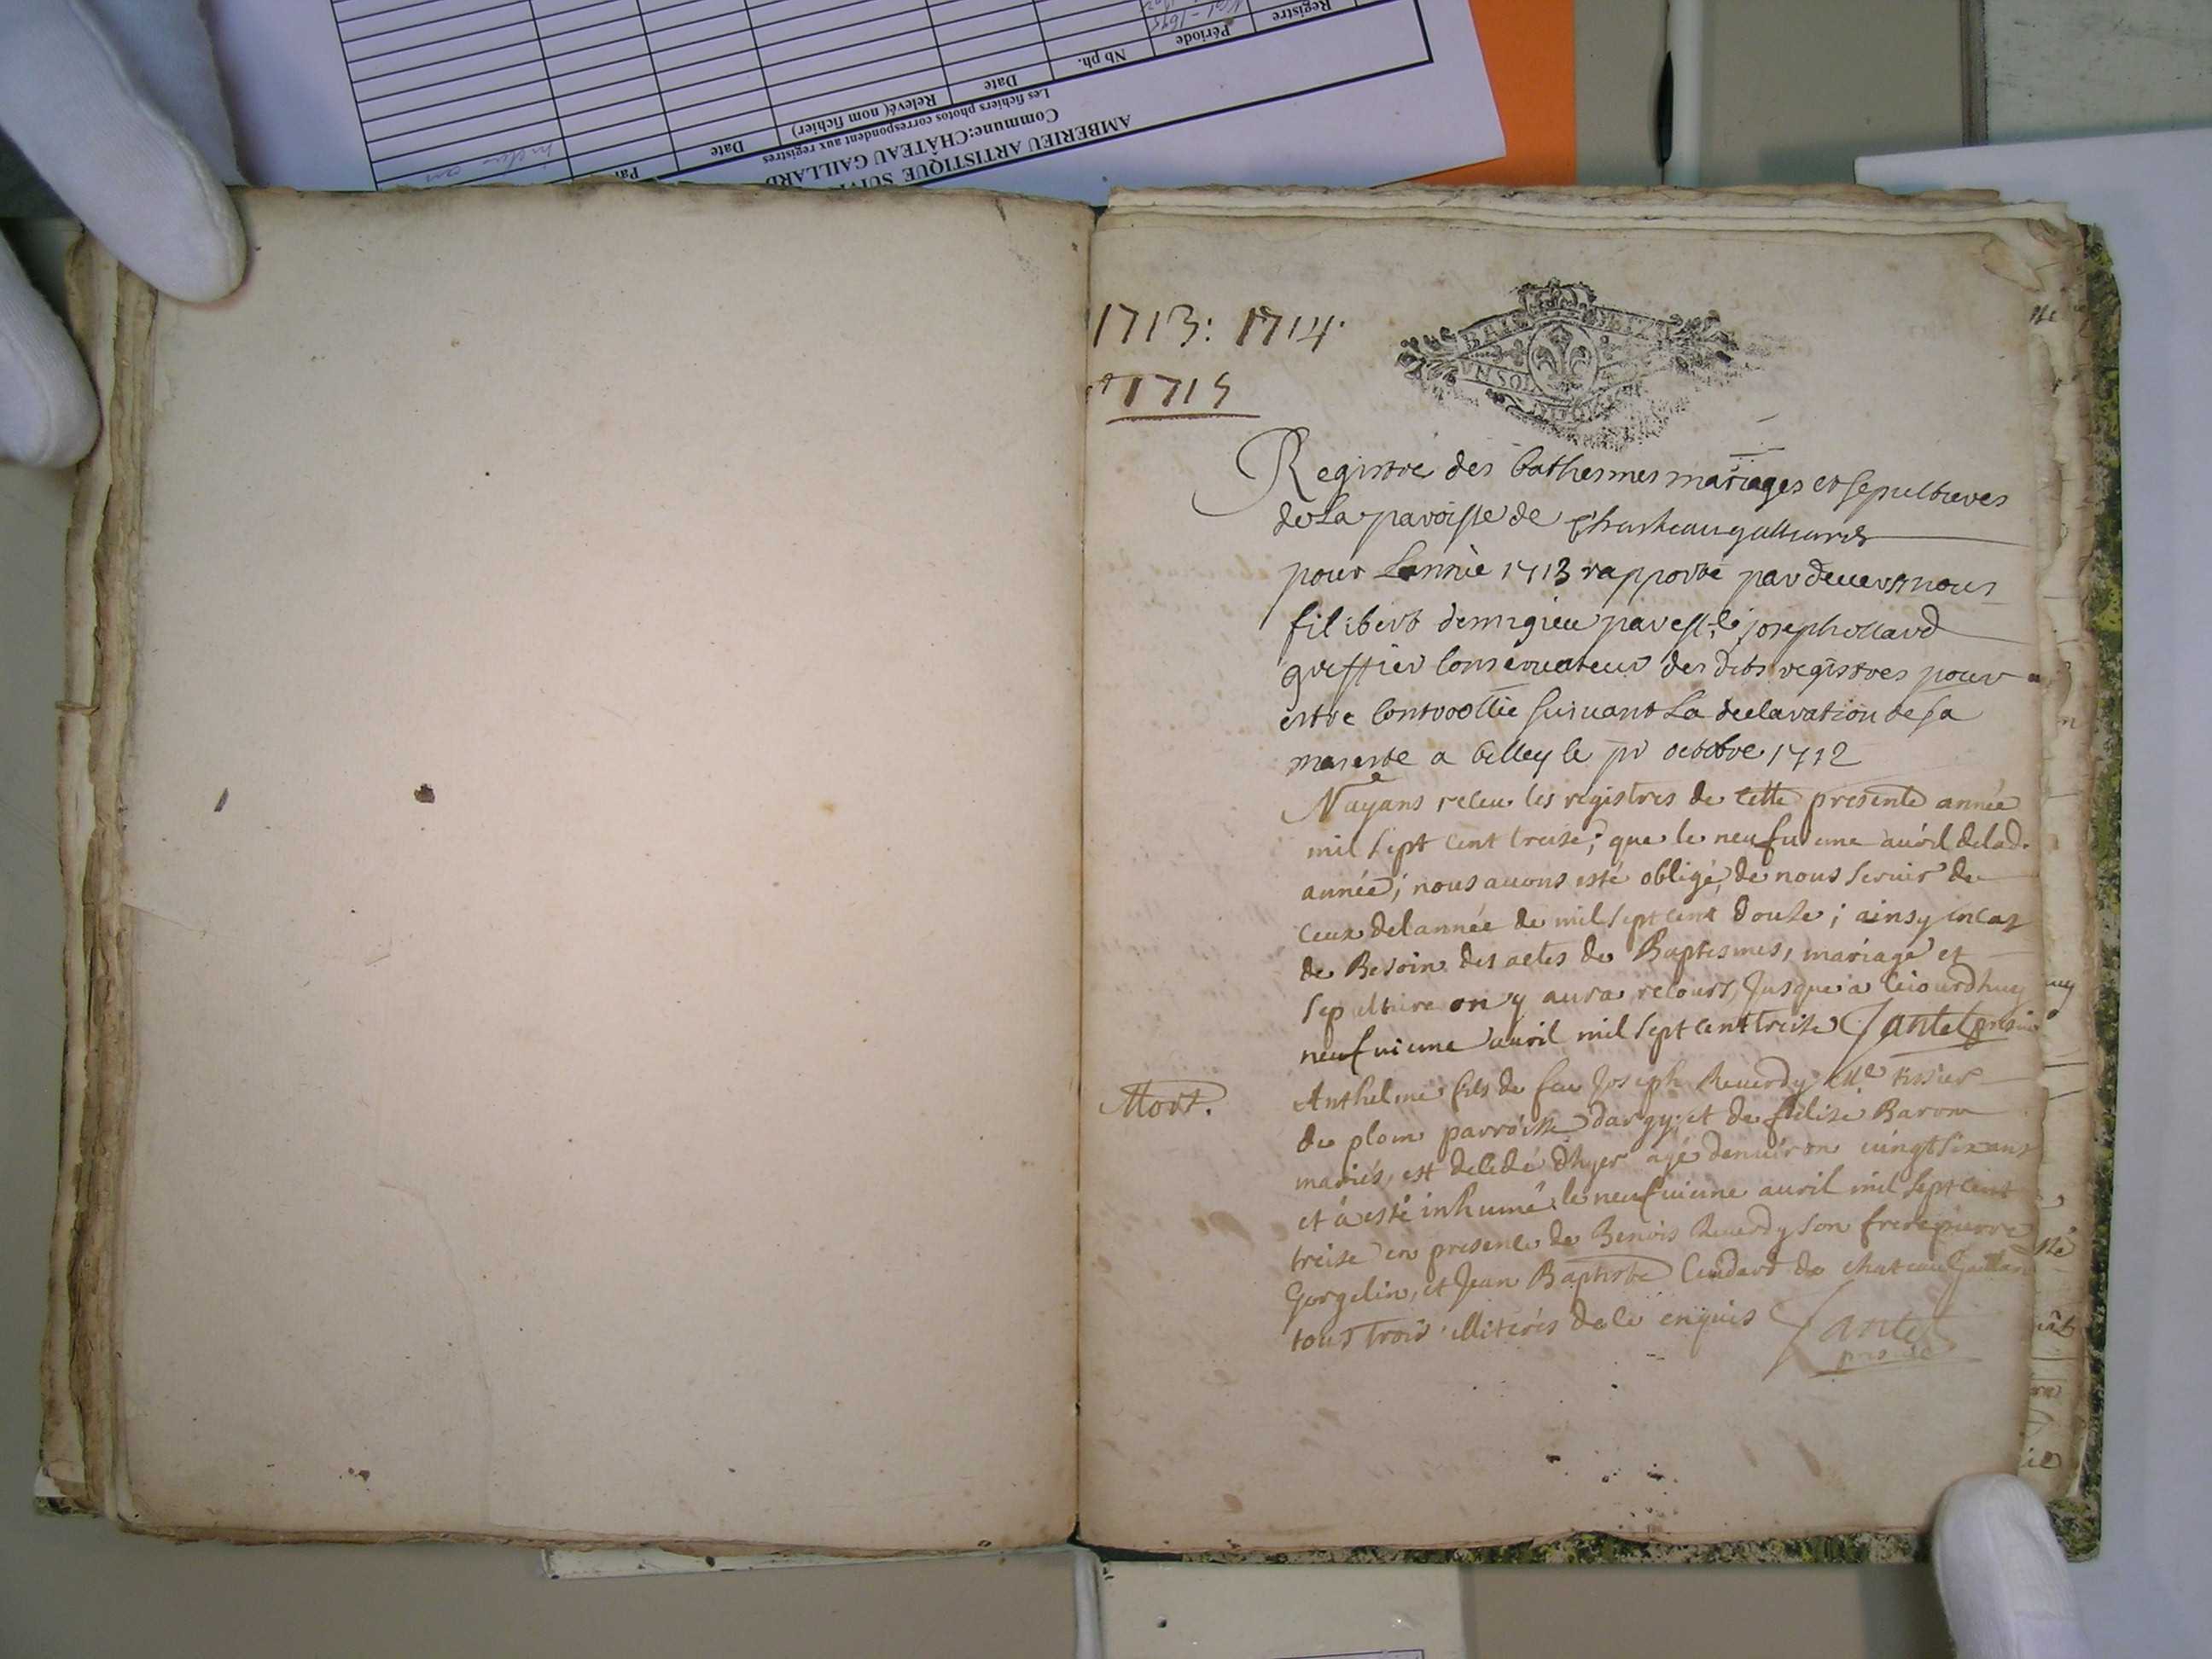 AMBERIEU ARTISTIQUE
Commune:CHÂTEAU GAILLARD
Les fichiers photos correspondent aux registres
Registre
Période
Nb ph.
Date
Relevé( nom fichier)
Date
1713: 1714.
et 1715
UN SOL
Registre des bathesmes mariages et sepultures
de la paroisse de Chasteaugalliard
pour Lannée 1713 rapporté pardeuers nous
filibert demigieu par
greffier Conseruateur des dits registres pour
estre Controollé suiuant La declaration de sa
majesté a belley le pr octobre 1712
N'ayans receu les registres de cette presente année
mil sept cent treize; que le neufuieme auril delad.
année; nous auons esté obligé, de nous seruir de
ceux delannée de mil sept cent douze; ainsy en cas
de Besoin des actes de Baptesmes, mariage et
sepulture on y aura recours, jusque a ceiourdhuy
neufuieme auril mil sept cent treize
Mort.
Anthelme fils de feu Joseph Reuerdy Me tissier
de plom parroisse dargy; et de
mariés, est decedé dhyer agé denuiron uingt six ans
et a esté inhumé le neufuieme auril mil sept cent
treize en presence de Benois Reuerdy son frere pierre
Gorgelin, et Jean Baptiste Cendard de chateau Gaillard
tous trois illiterés de ce enquis